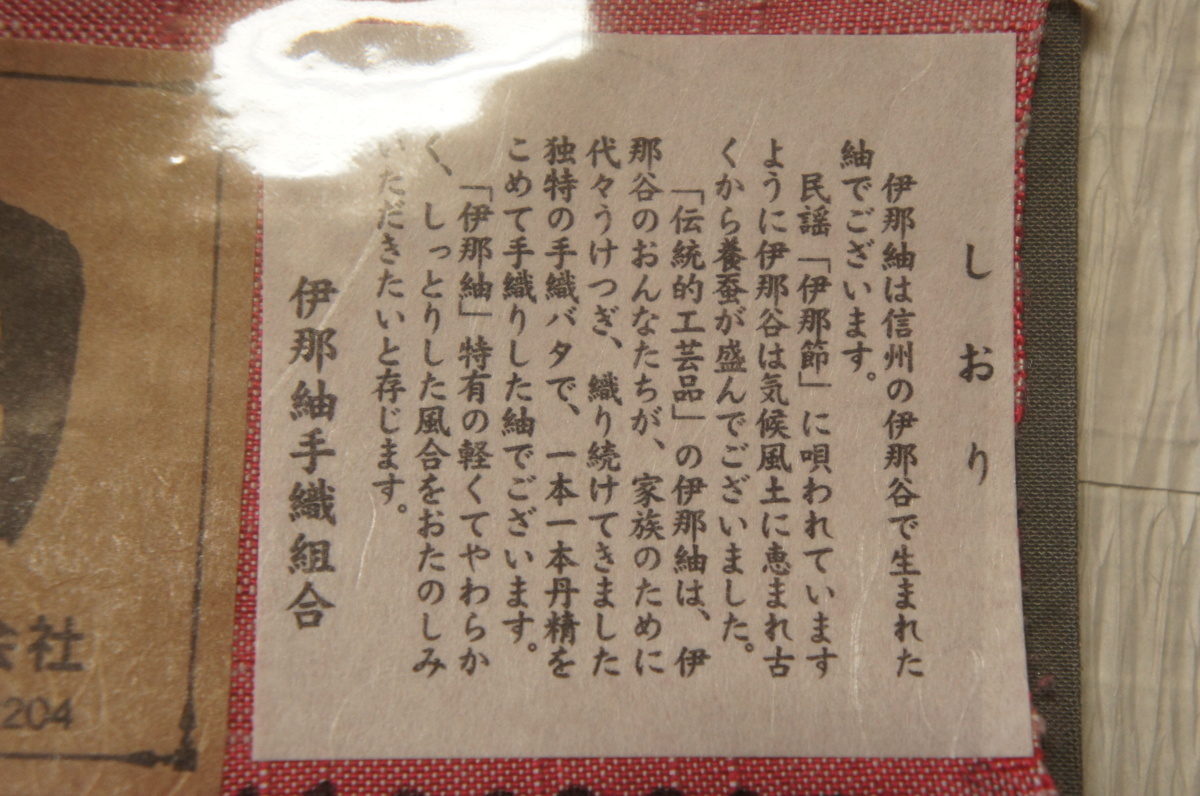 しおり
伊那紬は信州の伊那谷で生まれた
紬でございます。
民謡「伊那節」に唄われています
ように伊那谷は気候風土に恵まれ古
くから養蚕が盛んでございました。
「伝統的工芸品」の伊那紬は、伊
那谷のおんなたちが、家族のために
代々うけつぎ、織り続けてきました
独特の手織バタで、一本一本丹精を
こめて手織りした紬でございます。
「伊那紬」特有の軽くてやわらか
く、しっとりした風合をおたのしみ
いただきたいと存じます。
伊那紬手織組合
会社
204